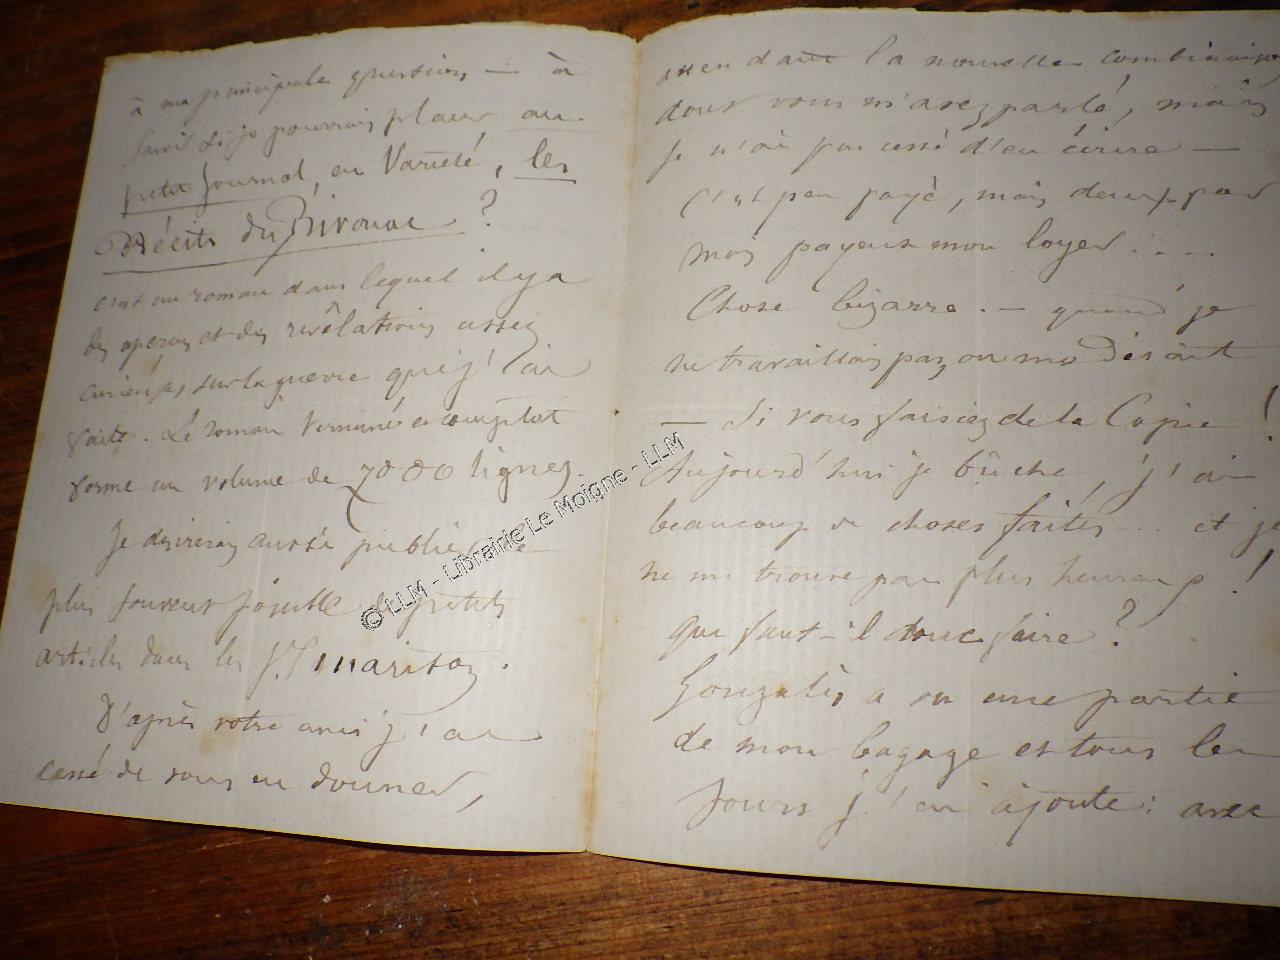 à ma principale question, — à
savoir si je pourrais placer au
petit Journal, en Variété, les
Récits du Bivouac ?
c'est un roman dans lequel il y a
des aperçus et des révélations assez
curieuses, sur la guerre que j'ai
faite. Le roman terminé et complet
forme un volume de 7000 lignes.
Je désirerais aussi publier le
plus souvent possible de petits
articles dans les
D'après votre avis j'ai
cessé de vous en donner,
attendant la nouvelle combinaison
dont vous m'avez parlé, mais
je n'ai pas cessé d'en écrire —
C'est peu payé, mais deux par
mois payent mon loyer....
Chose bizarre. — quand je
ne travaillais pas, on me disait
— Si vous faisiez de la Copie !
Aujourd'hui je bûche, j'ai
beaucoup de choses faites ... et je
ne me trouve pas plus heureux !
que faut-il donc faire ?
Gonzalès a vu une partie
de mon bagage et tous les
jours j'en ajoute : avec
© LLM - Librairie Le Moigne - LLM